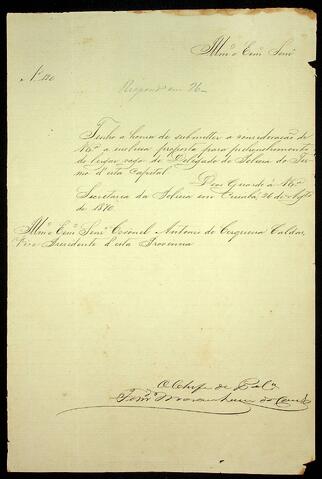 Illmº e Exmº Senr
Nº 120
Respond. em 26
Tenho a honra de submetter a consideração de
Vª a inclusa proposta para prehenchimento
do lugar vago de Delegado de Policia do Ter-
mo d'esta capital.
Deos Guarde a Vª
Secretaria da Policia em Cuiabá, 26 de Agto
de 1870.
Illmº e Exmº Senr Coronel Antonio de Cerqueira Caldas,
Vice Presidente d'esta Provincia
O Chefe de Polª